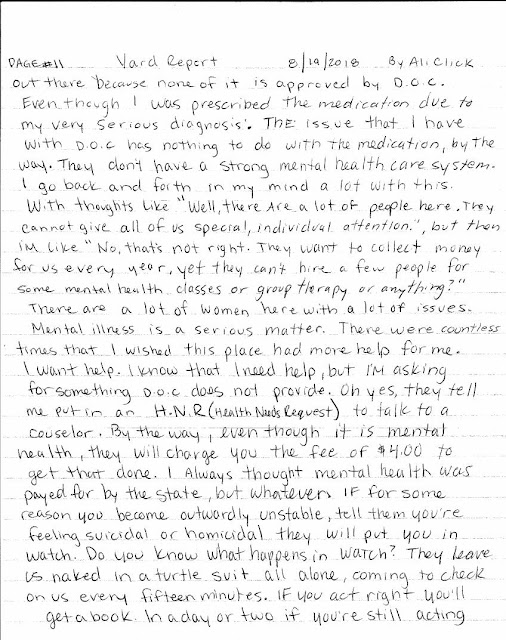 PAGE#11 Yard Report 8/19/2018 By Ali Click
out there because none of it is approved by D.O.C.
Even though I was prescribed the medication due to
my very serious diagnosis. THE issue that I have
with D.O.C has nothing to do with the medication, by the
way. They don't have a strong mental health care system.
I go back and forth in my mind a lot with this.
With thoughts like "Well, there Are a lot of people here. They
cannot give all of us special, individual attention.", but then
I'M like "No, that's not right. They want to collect money
for us every year, yet they can't hire a few people for
some mental health classes or group therapy or anything?"
There are a lot of women here with a lot of issues.
Mental illness is a serious matter. There were countless
times that I wished this place had more help for me.
I want help. I know that I need help, but I'M asking
for something D.O.C. does not provide. Oh yes, they tell
me put in an H.N.R (Health Needs Request) to talk to a
couselor. By the way, even though it is mental
health, they will charge you the fee of $4.00 to
get that done. I Always thought mental health was
payed for by the state, but whatever. IF for some
reason you become outwardly unstable, tell them you're
feeling suicidal or homicidal they will put you in
watch. Do you know what happens in watch? They leave
us naked in a turtle suit all alone, coming to check
on us every fifteen minutes. IF you act right you'll
get a book. In a day or two if you're still acting